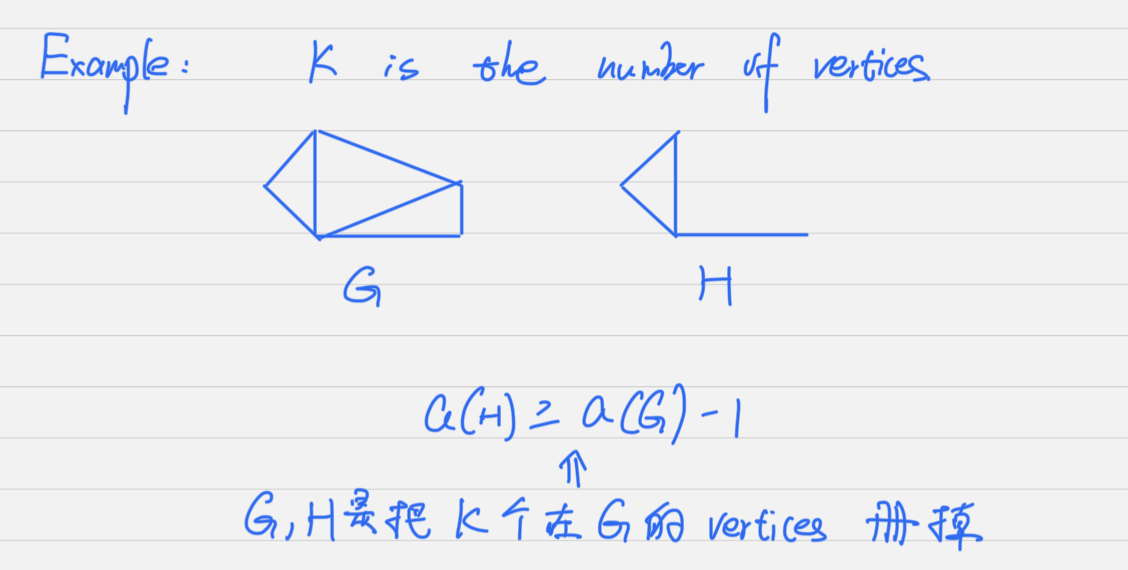 Example: K is the number of vertices
G H
a(H) ≥ a(G) - 1
⇑
G, H 是把 K 个在 G 的 vertices 删掉